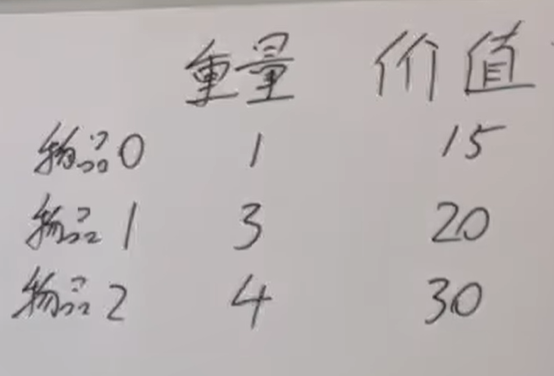 重量 价值
物品0 1 15
物品1 3 20
物品2 4 30